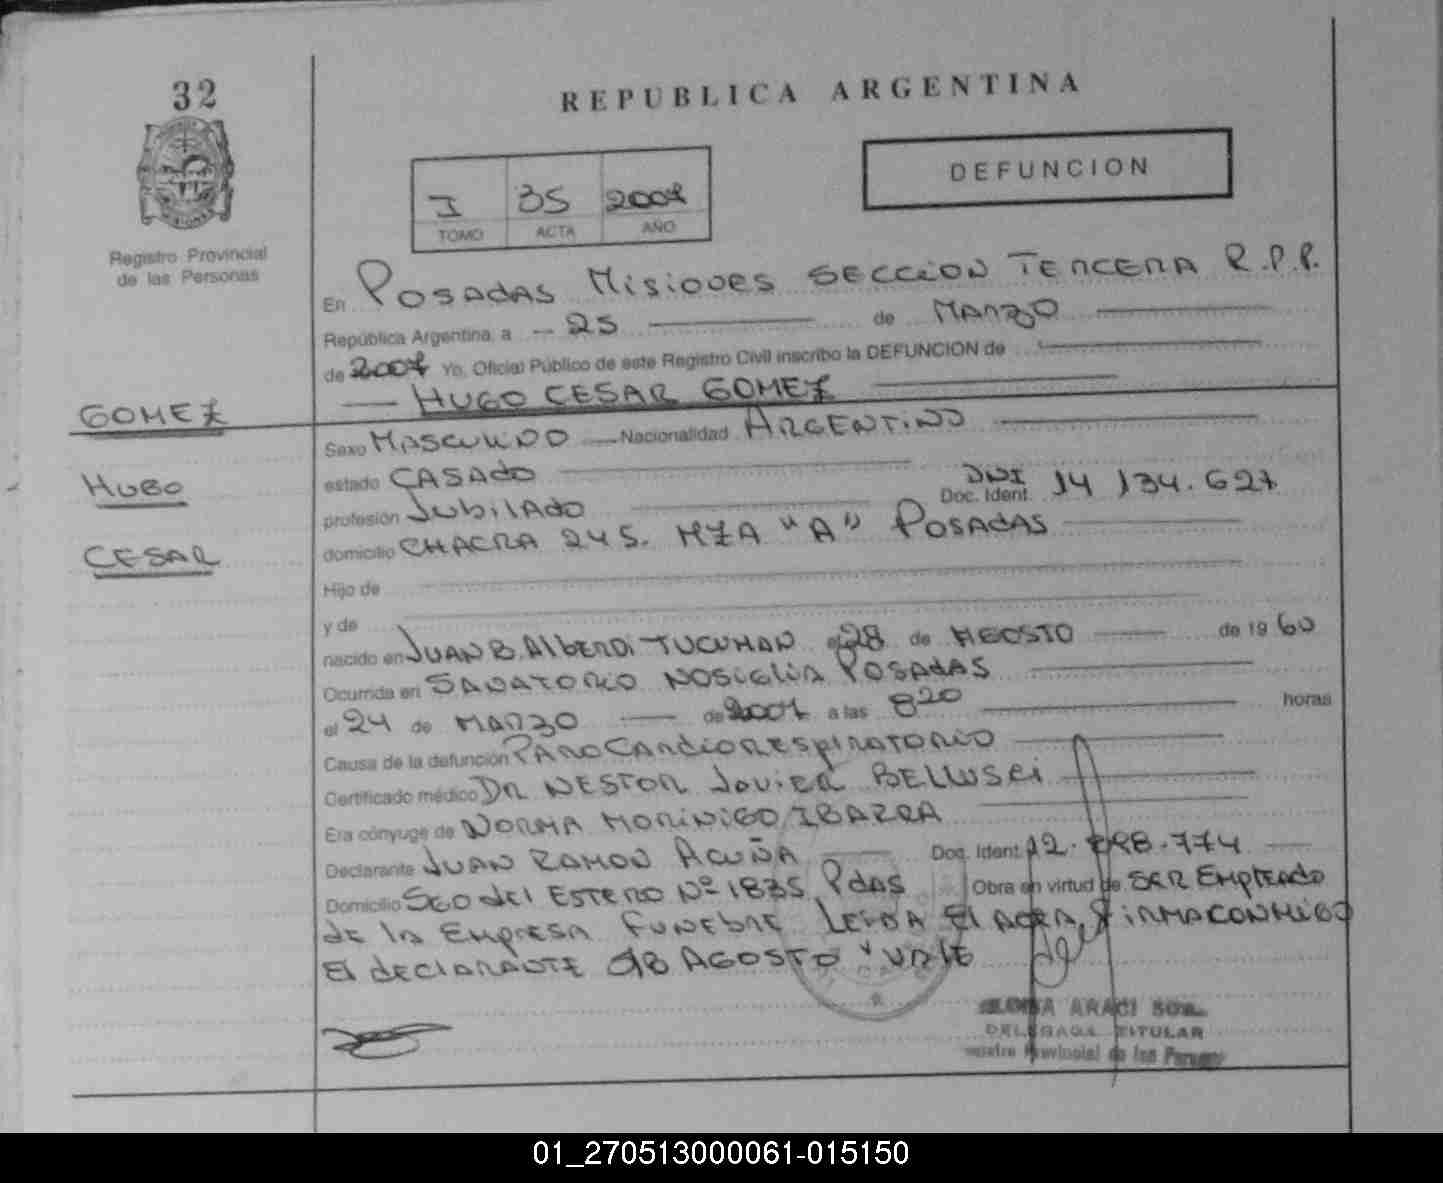 32
REPUBLICA ARGENTINA
DEFUNCION
I 35 2007
TOMO ACTA AÑO
Registro Provincial
de las Personas
En POSADAS MISIONES SECCION TERCERA R.P.P.
República Argentina, a 25 de MARZO
de 2007 Yo, Oficial Público de este Registro Civil inscribo la DEFUNCION de
HUGO CESAR GOMEZ
GOMEZ
HUGO
CESAR
Sexo MASCULINO Nacionalidad ARGENTINO
estado CASADO
profesión JUBILADO DNI Doc. Ident. 14 134.627
domicilio CHACRA 245. MZA "A" POSADAS
Hijo de
y de
nacido en JUAN B. ALBERDI TUCUMAN el 28 de AGOSTO de 19 60
Ocurrida en SANATORIO NOSIGLIA POSADAS
el 24 de MARZO de 2007 a las 8 20 horas
Causa de la defunción PARO CARDIORESPIRATORIO
Certificado médico DR NESTOR JAVIER BELLUSCI
Era cónyuge de NORMA MORINIGO IBARRA
Declarante JUAN RAMON ACUÑA Doc. Ident. 12.898.774
Domicilio SGO del ESTERO Nº 1835 Pdas Obra en virtud de SER EMPLEADO
de la EMPRESA FUNEBRE LEIDA El ACTA, FIRMA CONMIGO
El declarante AGOSTO
ARACI
DELEGADA TITULAR
Provincial de las
01_270513000061-015150